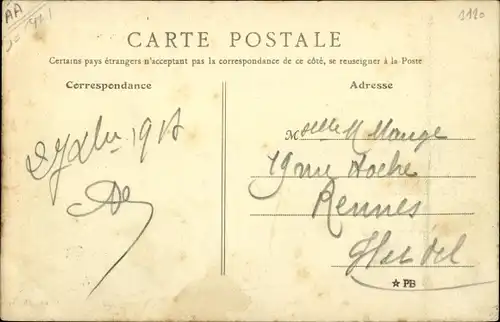 AA
3120
CARTE POSTALE
Certains pays étrangers n'acceptant pas la correspondance de ce côté, se renseigner à la Poste
Correspondance
Adresse
Mselle M Mauge
19 rue Hoche
Rennes
Ille et Vil
★ PB